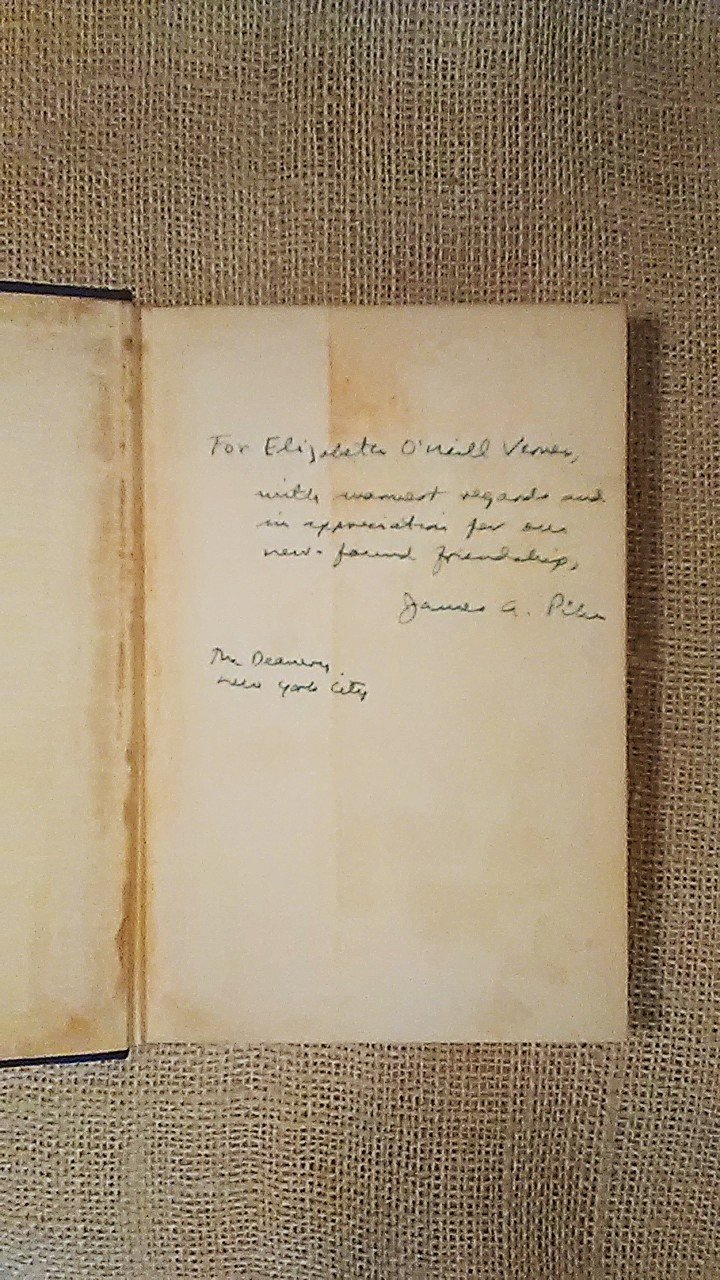 For Elizabeth O'Neill Verner,
with warmest regards and
in appreciation for our
new-found friendship,
James A. Pike
The Deanery
New York City